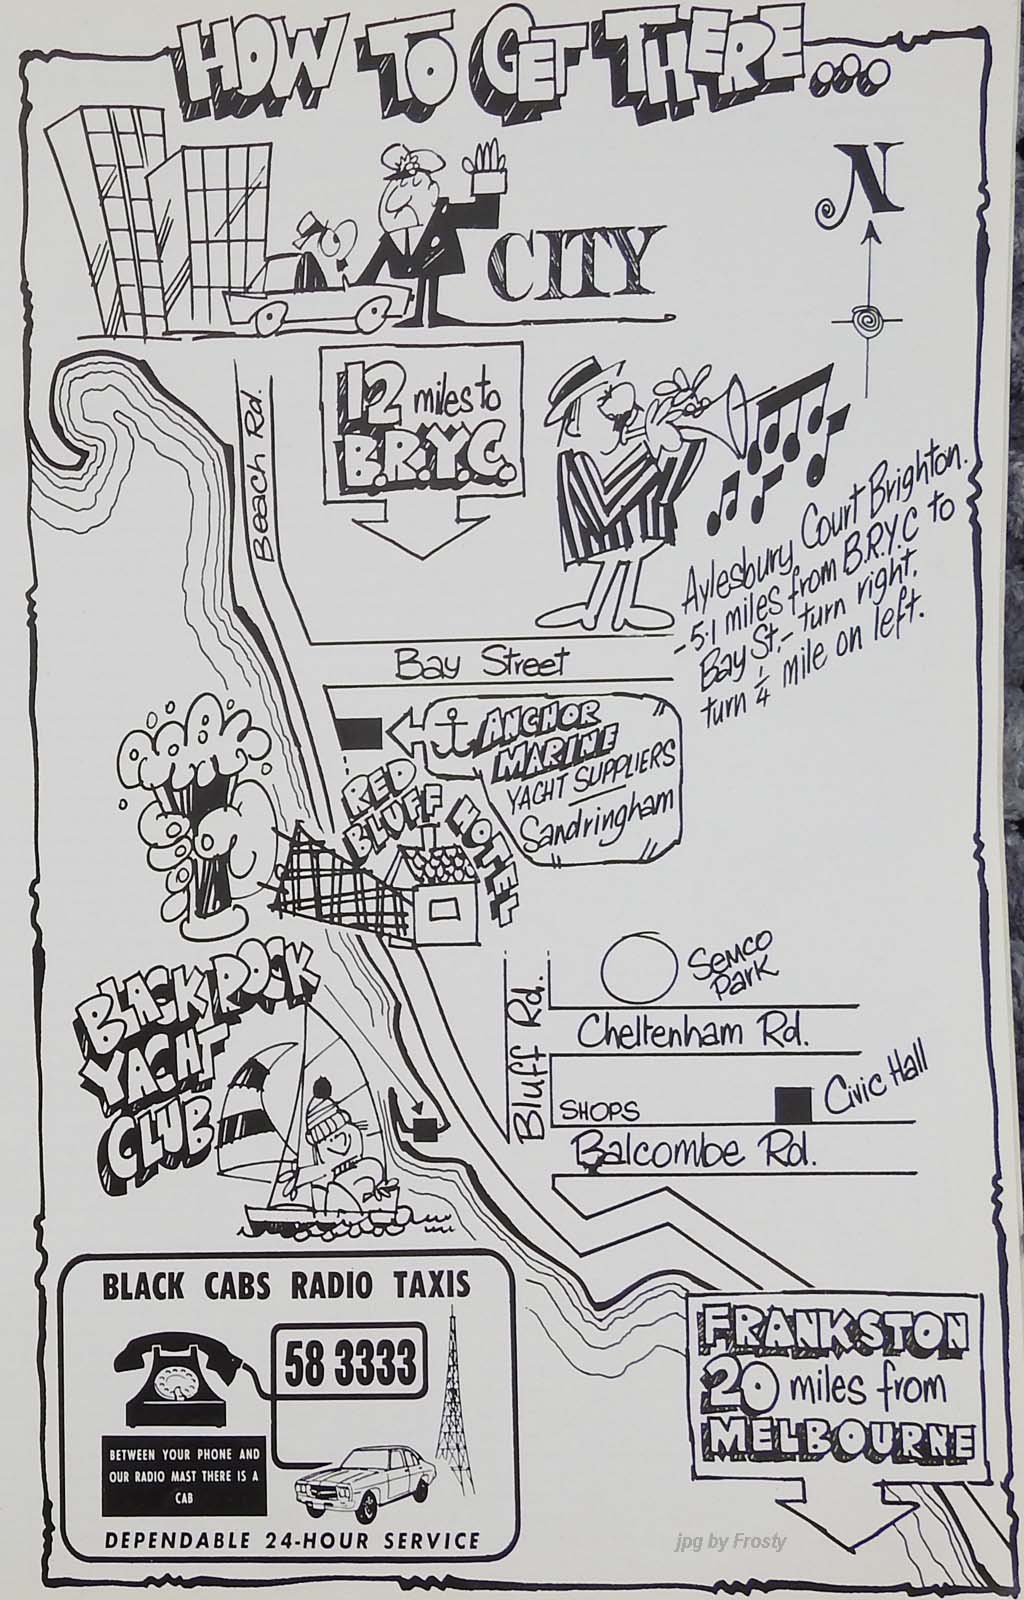 HOW TO GET THERE...
N
CITY
Beach Rd.
12 miles to
B.R.Y.C.
Aylesbury Court Brighton.
-5·1 miles from B.R.Y.C to
Bay St,- turn right.
turn 1/4 mile on left.
Bay Street
ANCHOR
MARINE
YACHT SUPPLIERS
Sandringham
RED
BLUFF HOTEL
BLACK ROCK
YACHT
CLUB
Bluff Rd.
SEMCO
PARK
Cheltenham Rd.
SHOPS
Civic Hall
Balcombe Rd.
BLACK CABS RADIO TAXIS
58 3333
BETWEEN YOUR PHONE AND
OUR RADIO MAST THERE IS A
CAB
DEPENDABLE 24-HOUR SERVICE
FRANKSTON
20 miles from
MELBOURNE
jpg by Frosty